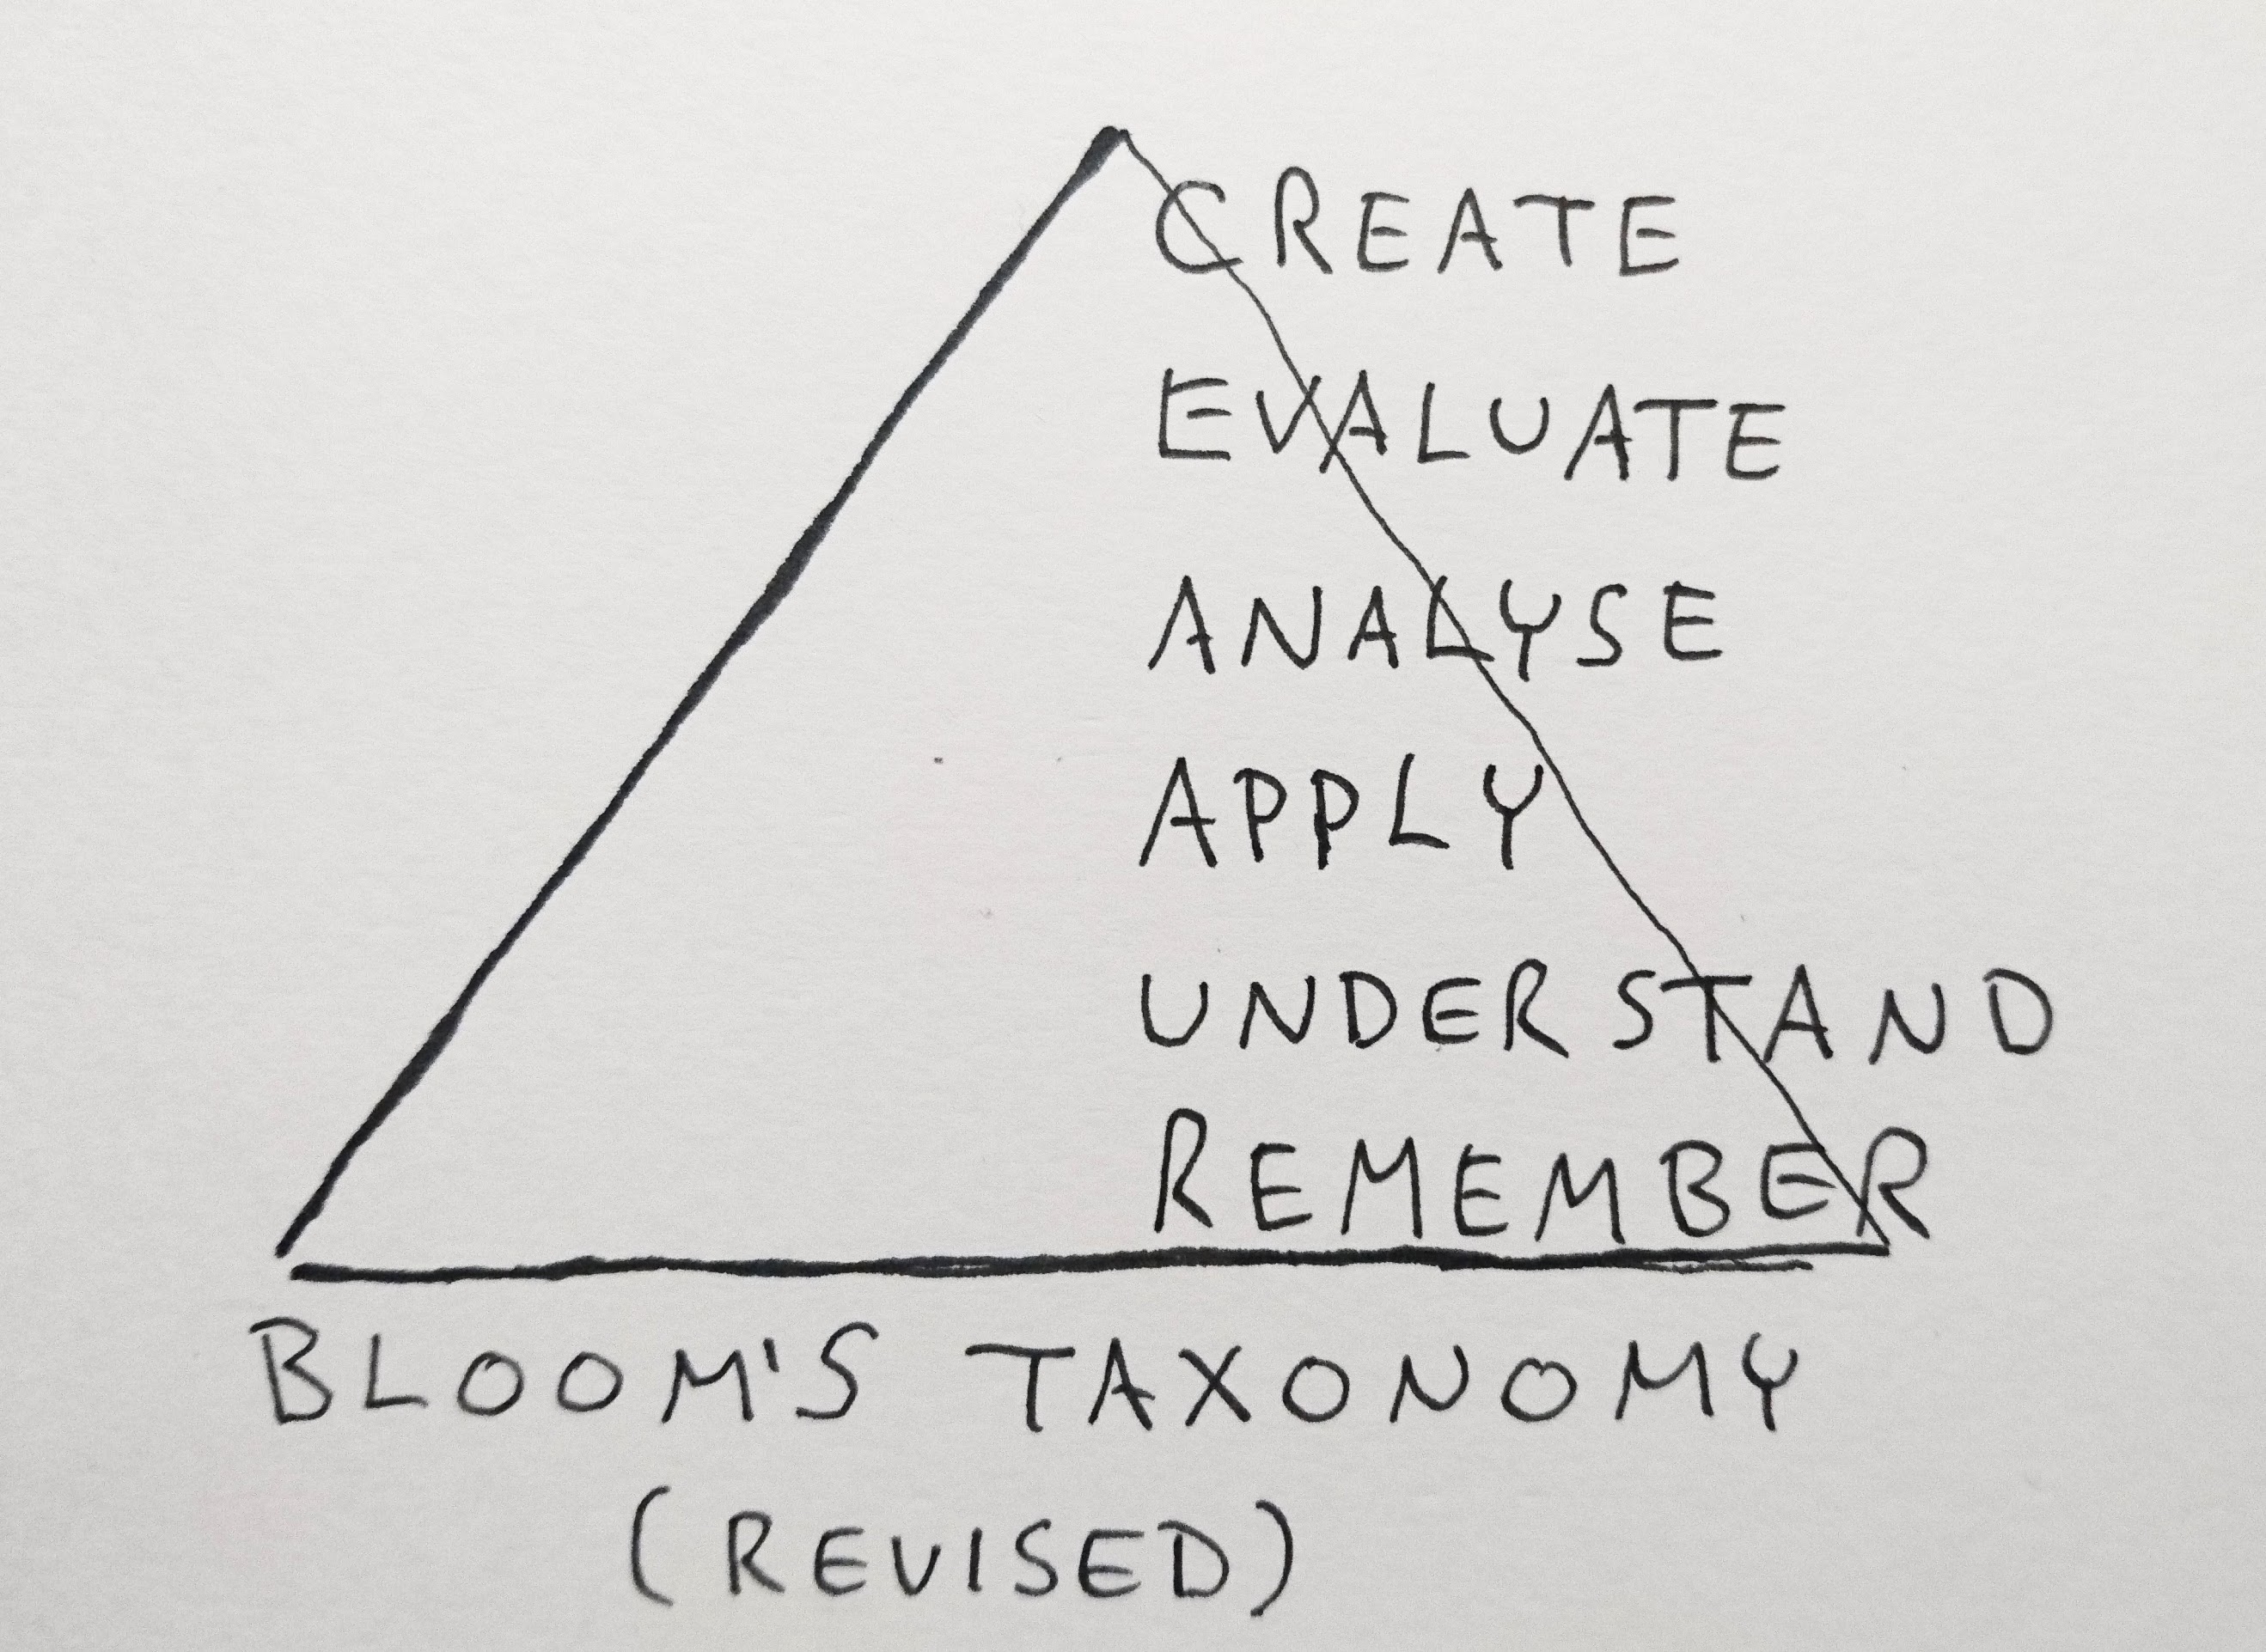 CREATE
EVALUATE
ANALYSE
APPLY
UNDERSTAND
REMEMBER
BLOOM'S TAXONOMY
(REVISED)